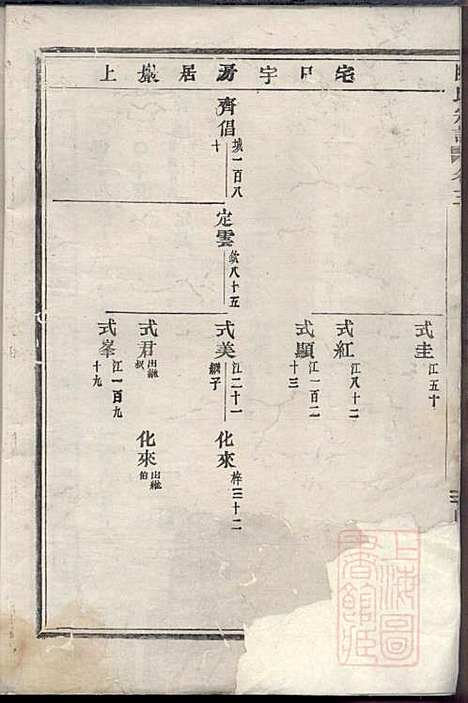 宅口宇房居巖上
齊倡
城一百八
十
定雲
欽八十五
式圭
江五十
式紅
江八十二
式顯
江一百二
十三
式美
江二十一
繼子
式君
出繼
叔
式峯
江一百九
十九
化來
梓三十二
化來
出繼
伯
上海圖
書館藏